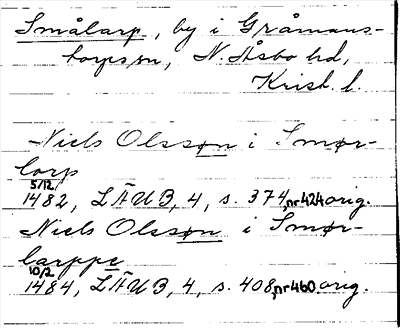 Smålarp, by i Gråmans-
torps sn, N. Åsbo hd,
Krist. l.
Niels Olssøn i Smør-
torp
5/12
1482, LÄUB, 4, s. 374, nr 424 orig.
Niels Olssøn i Smør-
larppe
10/2
1484, LÄUB, 4, s. 408, nr 460 orig.